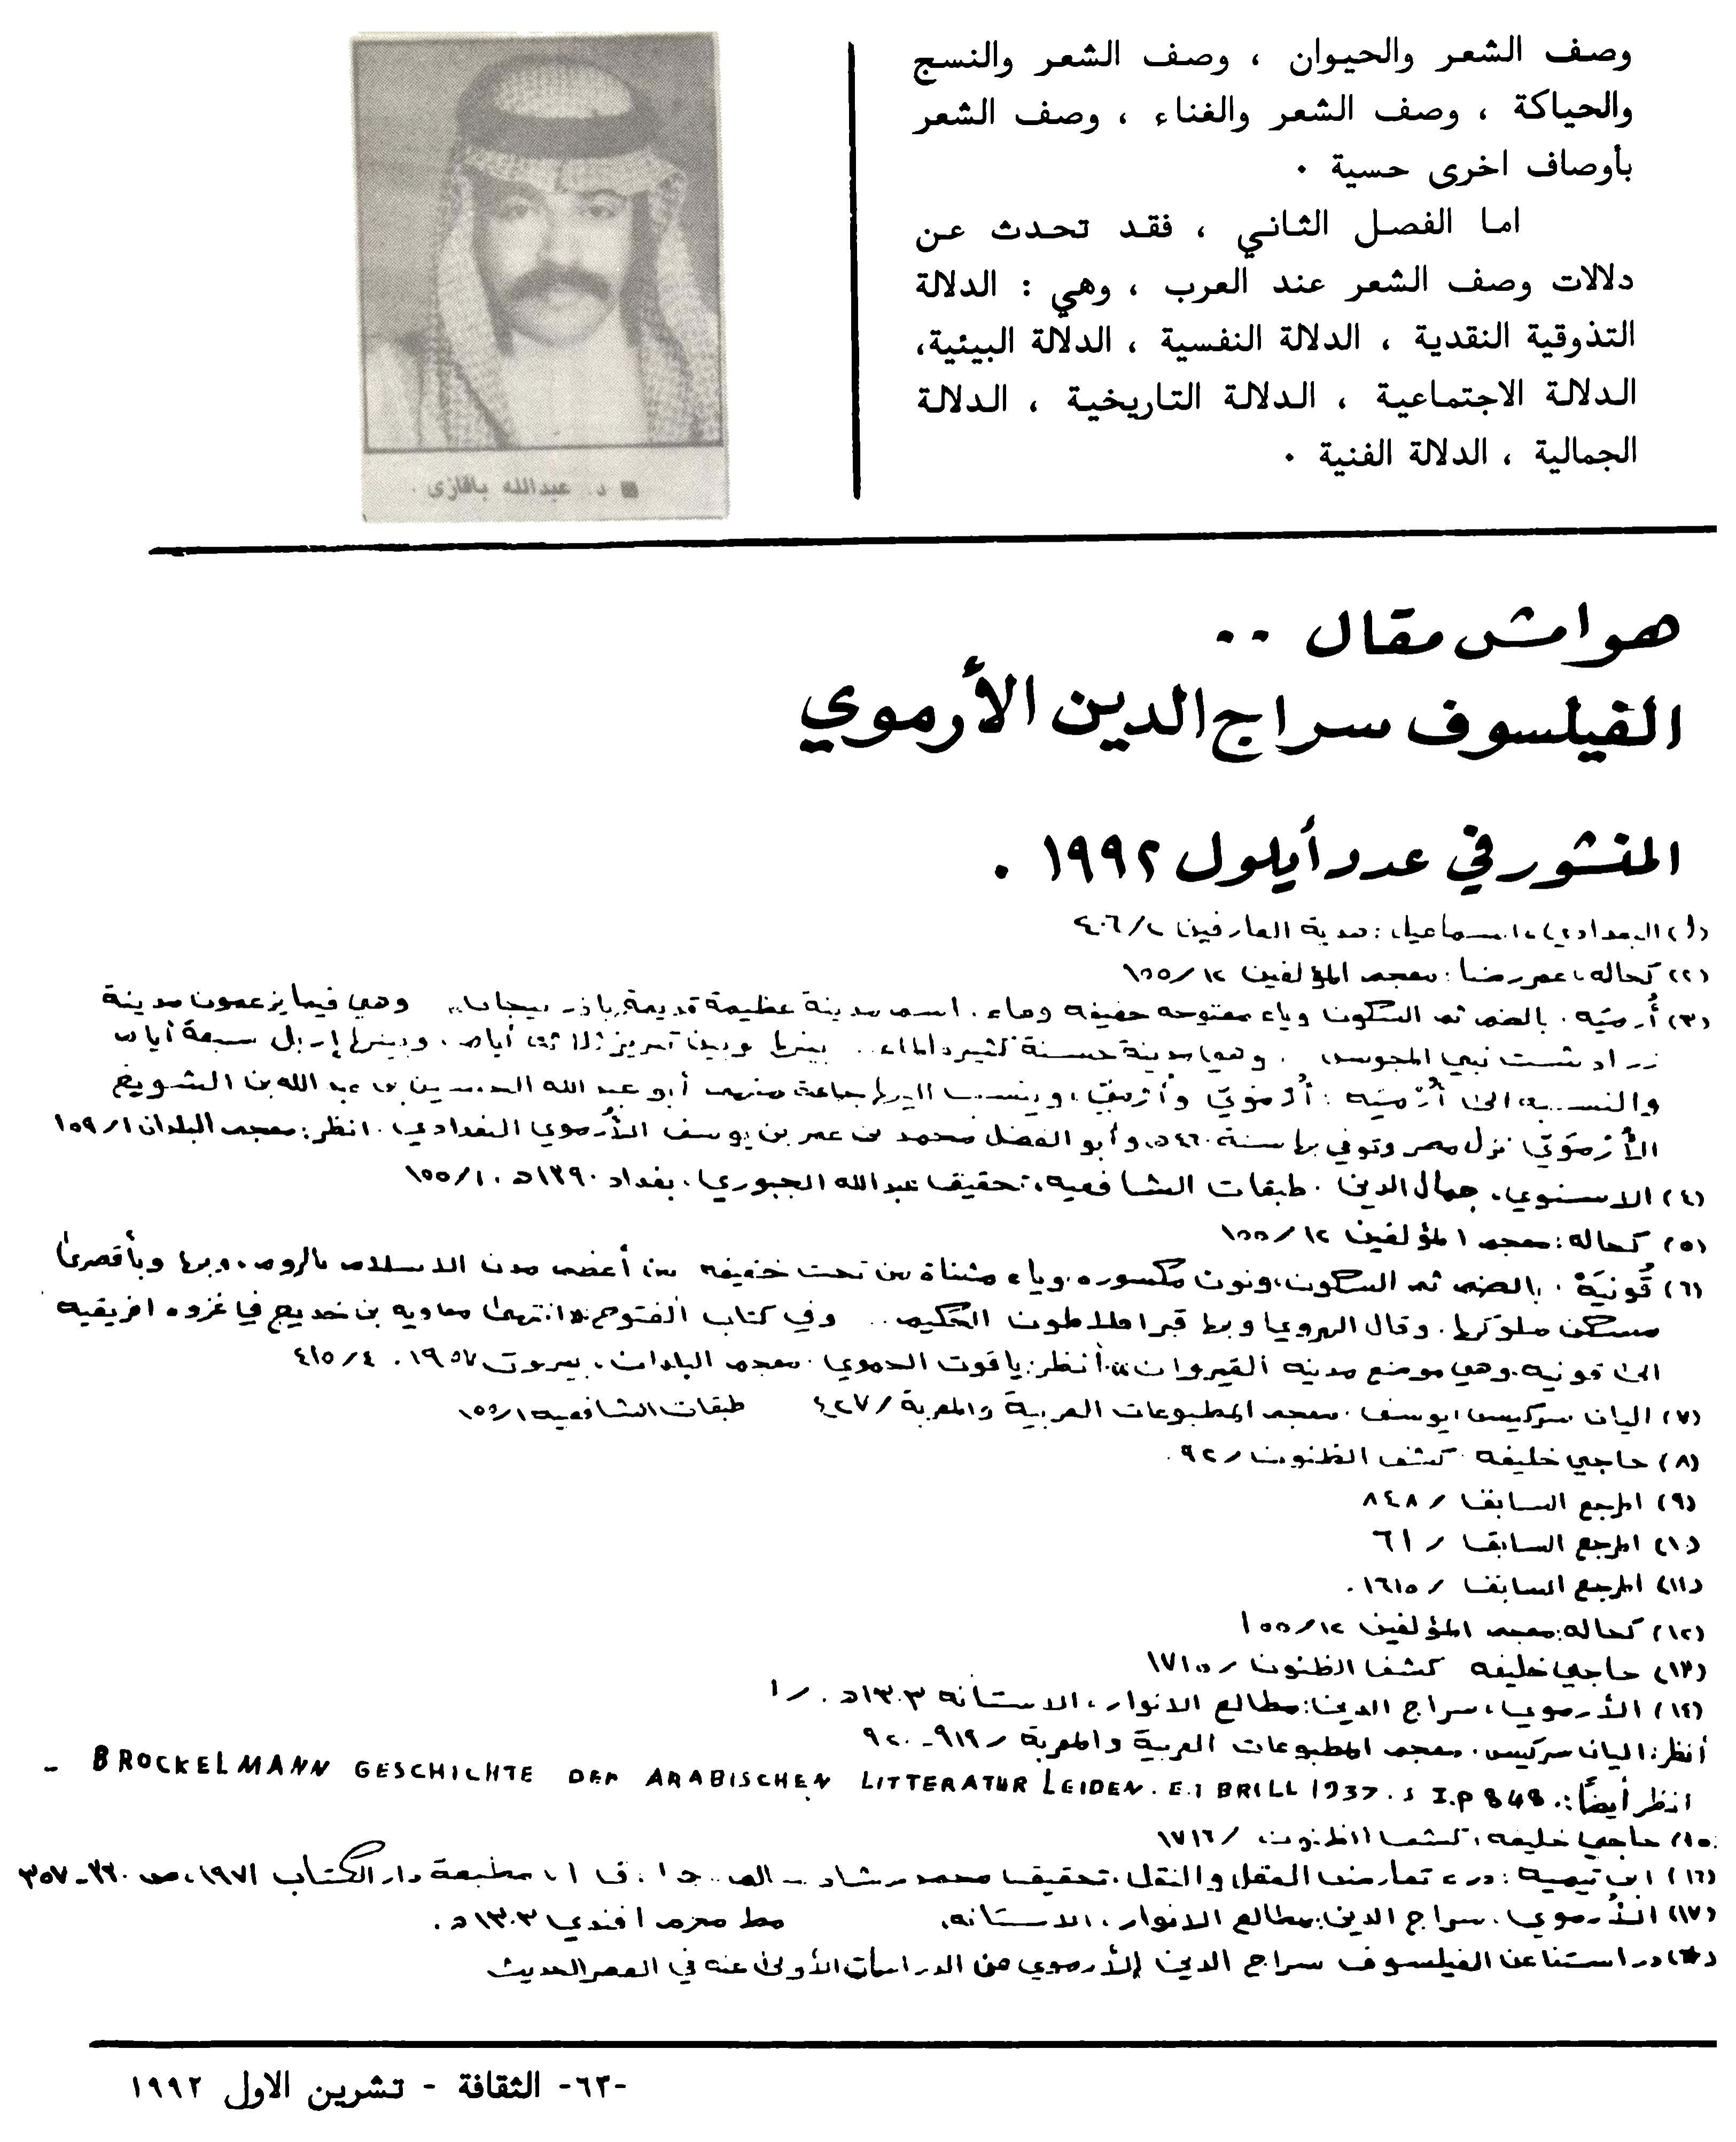 وصف الشعر والحيوان ، وصف الشعر والنسج
والحياكة ، وصف الشعر والغناء ، وصف الشعر
بأوصاف اخرى حسية ٠
اما الفصل الثاني ، فقد تحدث عن
دلالات وصف الشعر عند العرب ، وهي : الدلالة
التذوقية النقدية ، الدلالة النفسية ، الدلالة البيئية،
الدلالة الاجتماعية ، الدلالة التاريخية ، الدلالة
الجمالية ، الدلالة الفنية ٠
د. عبدالله باقازى .
هوامش مقال ٠٠
الفيلسوف سراج الدين الأرموي
المنشور في عدد أيلول ١٩٩٢ .
(١) البغدادي، اسماعيل : هدية العارفين ٢/٤٠٦
(٢) كحاله، عمر رضا : معجم المؤلفين ١٢/١٥٥
(٣) أُرميَه . بالضم ثم السكون وياء مفتوحه خفيفه وهاء. اسم مدينة عظيمة قديمة باذربيجان.. وهي فيما يزعمون مدينة
زرادشت نبي المجوس . وهي مدينة حسنة كثيرة الماء.. بينها وبين تبريز ثلاثة أيام، وبينها إربل سبعة أيام
والنسبة الى أُرْميَه : أُرْمَوِيّ وأُرْمِيّ، وينسب اليها جماعة منهم أبو عبد الله الحسين بن عبد الله بن الشويخ
الأُرْمَوِيّ نزل مصر وتوفي بها سنة ٤٦٠هـ، وأبو الفضل محمد بن عمر بن يوسف الأُرموي البغدادي. انظر: معجم البلدان ١/١٥٩
(٤) الاسنوي، جمال الدين . طبقات الشافعيه، تحقيق عبدالله الجبوري، بغداد ١٣٩٠هـ، ١/١٥٥
(٥) كحاله: معجم المؤلفين ١٢/١٥٥
(٦) قُونيَة . بالضم ثم السكون، ونون مكسوره، وياء مثناة من تحت خفيفه من أعظم مدن الاسلام بالروم، وبها وبأقصرى
مسكن ملوكها. وقال الهروي وبها قبر افلاطون الحكيم.. وفي كتاب الفتوح انتهى معاويه بن خديج في غزوه افريقيه
الى قونيه، وهي موضع مدينه القيروان» أنظر: ياقوت الحموي. معجم البلدان، بيروت ١٩٥٧، ٤/٤١٥
(٧) اليان سركيس، يوسف . معجم المطبوعات العربية والمعربة /٤٢٧ طبقات الشافعيه ١/١٥٥
(٨) حاجي خليفه . كشف الظنون /٩٢.
(٩) المرجع السابق / ٨٤٨
(١٠) المرجع السابق / ٦١
(١١) المرجع السابق /١٦١٥.
(١٢) كحاله: معجم المؤلفين ١٢/١٥٥
(١٣) حاجي خليفه كشف الظنون /١٧١٥
(١٤) الأرموي، سراج الدين: مطالع الانوار، الاستانه ١٣٠٣هـ. /١
أنظر: اليان سركيس. معجم المطبوعات العربية والمعربة / ٩١٩ـ٩٢٠
انظر أيضاً: BROCKELMANN GESCHICHTE DER ARABISCHEN LITTERATUR LEIDEN. E.J BRILL 1937. S I.P 848. -
(١٥) حاجي خليفه، كشف الظنون /١٧١٦
(١٦) ابن تيمية : درء تعارض العقل والنقل، تحقيق محمد رشاد جـ ١، ق ١، مطبعة دار الكتاب ١٩٧١، ص ـ٣٥٧
(١٧) الأُرموي. سراج الدين: مطالع الانوار، الاستانه، مط محرم افندي ١٣٠٣هـ.
(*) دراستنا عن الفيلسوف سراج الدين الأرموي من الدراسات الأولى عنه في العصر الحديث
-٦٣- الثقافة - تشرين الاول ١٩٩٢